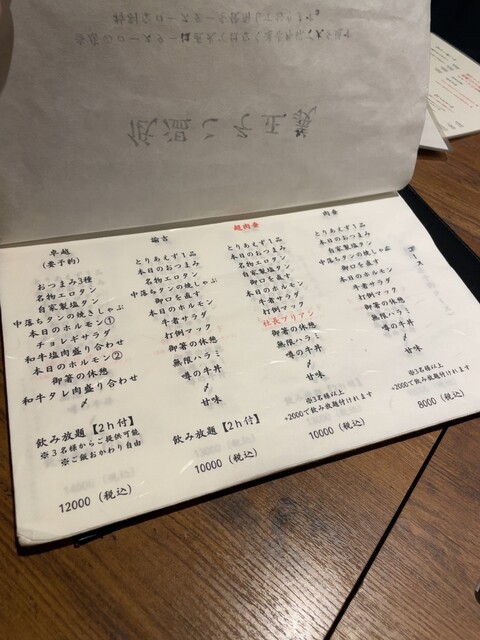 低温こそ正義
コース
肉金
とりあえず1品
本日のおつまみ
自家製塩タン
中落ちタンの焼しゃぶ
御口を直す
本日のホルモン
牛者サラダ
打倒マック
御箸の休憩
無限ハラミ
噂の牛丼
〆
甘味
※3名様以上
+2000で飲み放題付けれます
8000(税込)
超肉金
とりあえず1品
本日のおつまみ
名物エロタン
自家製塩タン
御口を直す
本日のホルモン
牛者サラダ
打倒マック
社長ブリアン
御箸の休憩
無限ハラミ
噂の牛丼
〆
甘味
※3名様以上
+2000で飲み放題付けれます
10000(税込)
諭吉
とりあえず1品
本日のおつまみ
名物エロタン
自家製塩タン
中落ちタンの焼しゃぶ
御口を直す
本日のホルモン
牛者サラダ
打倒マック
御箸の休憩
無限ハラミ
噂の牛丼
〆
甘味
飲み放題【2h付】
10000(税込)
卓越
(要予約)
おつまみ3種
名物エロタン
自家製塩タン
中落ちタンの焼きしゃぶ
本日のホルモン①
チョレギサラダ
和牛塩肉盛り合わせ
本日のホルモン②
御箸の休憩
和牛タレ肉盛り合わせ
〆
飲み放題【2h付】
※3名様からご提供可能
※ご飯おかわり自由
12000(税込)